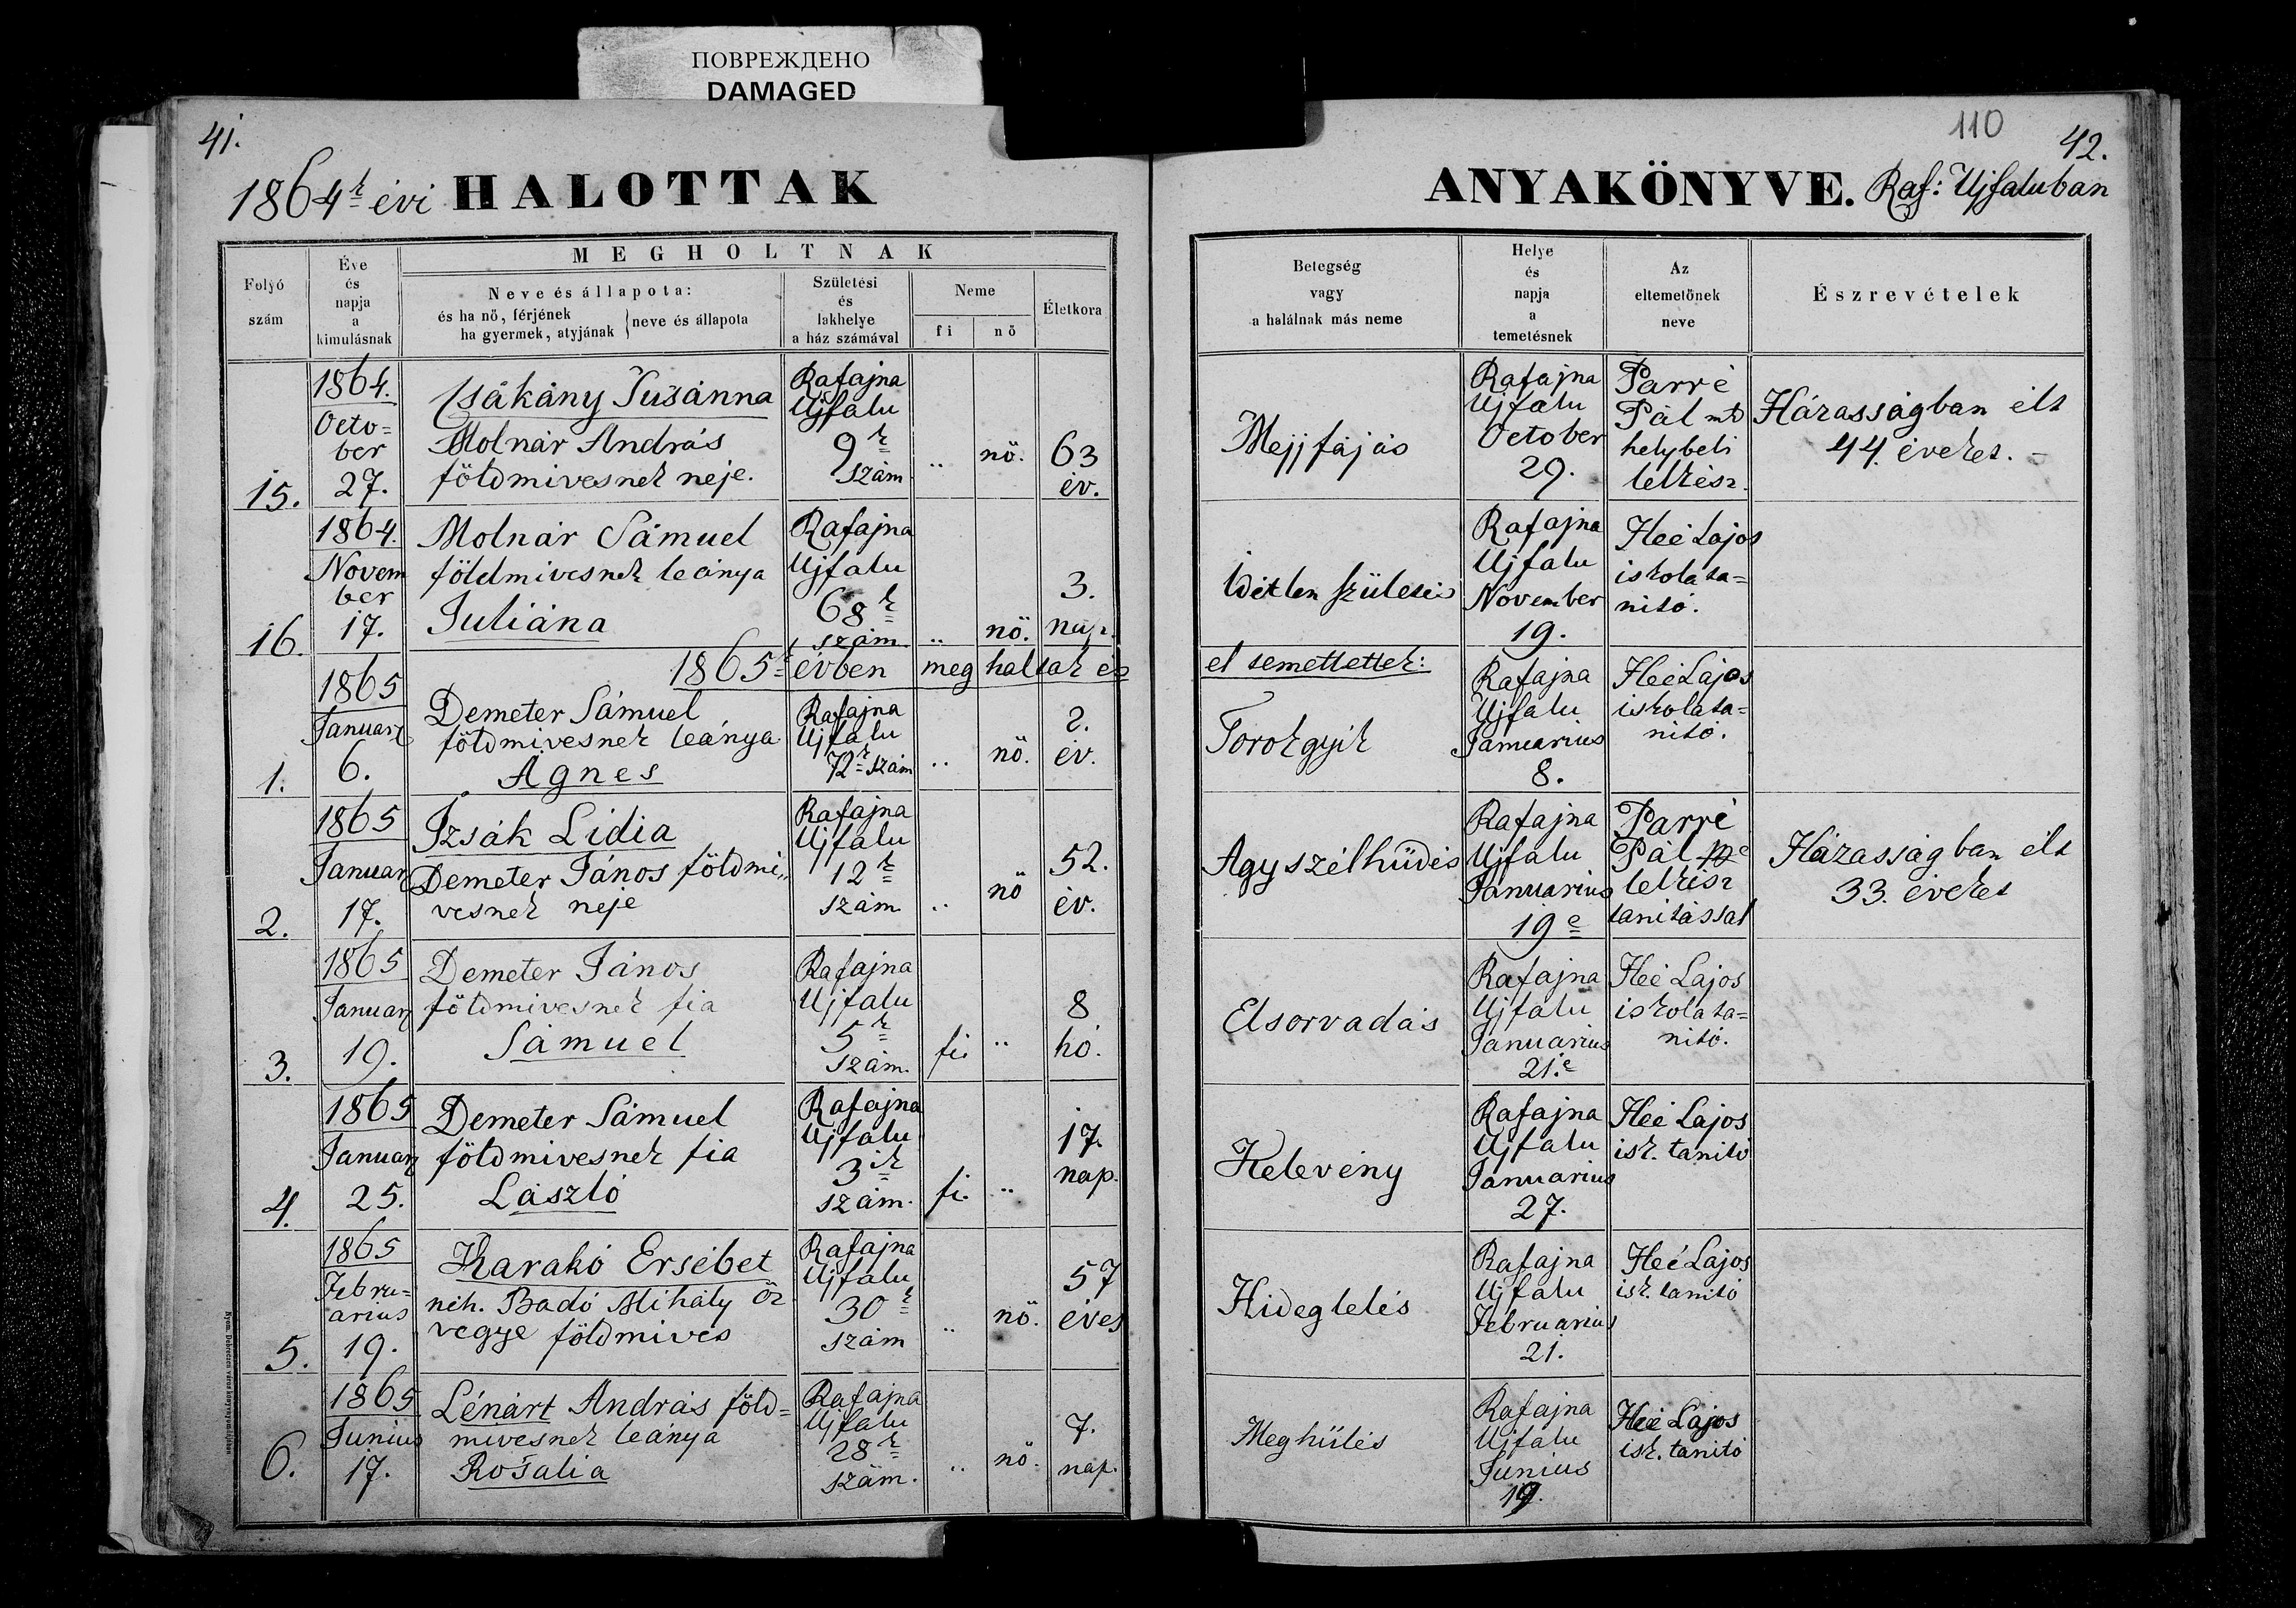 ПОВРЕЖДЕНО
DAMAGED
41.
110
42.
1864k évi HALOTTAK
ANYAKÖNYVE. Raf: Ujfaluban
Folyó
szám
Éve
és
napja
a
kimulásnak
MEGHOLTNAK
Neve és állapota:
és ha nő, férjének
ha gyermek, atyjának } neve és állapota
Születési
és
lakhelye
a ház számával
Neme
fi
nő
Életkora
Betegség
vagy
a halálnak más neme
Helye
és
napja
a
temetésnek
Az
eltemetőnek
neve
Észrevételek
15.
1864.
Octo=
ber
27.
Csákány Susánna
Molnár András
földmivesnek neje.
Rafajna
Ujfalu
9k
szám
..
nő.
63
év.
Mejjfájás
Rafajna
Ujfalu
October
29.
Parré
Pál
helybeli
lelkész.
Házasságban élt
44. éveket. -
16.
1864.
Novem
ber
17.
Molnár Sámuel
földmivesnek leánya
Juliána
Rafajna
Ujfalu
68k
szám.
..
nő.
3.
nap.
Idétlen születés
Rafajna
Ujfalu
November
19.
Heé Lajos
iskolata=
nitó.
1865k évben meg haltak és
el temettettek:
1.
1865
Januar
6.
Demeter Sámuel
földmivesnek leánya
Ágnes
Rafajna
Ujfalu
72k szám
..
nő.
2.
év.
Torokgyik
Rafajna
Ujfalu
Januarius
8.
Heé Lajos
iskolata=
nitó.
2.
1865
Januar
17.
Izsák Lidia
Demeter János földmi„
vesnek neje
Rafajna
Ujfalu
12k
szám
..
nő
52.
év.
Agyszélhüdés
Rafajna
Ujfalu
Januarius
19e
Parré
Pál
lelkész
tanitással
Házasságban élt
33. éveket
3.
1865
Januar
19.
Demeter János
földmivesnek fia
Sámuel
Rafajna
Ujfalu
5k
szám.
fi.
..
8
hó.
Elsorvadás
Rafajna
Ujfalu
Januarius
21.e
Heé Lajos
iskolata=
nitó.
4.
1865
Januar
25.
Demeter Sámuel
földmivesnek fia
László
Rafajna
Ujfalu
3ik
szám.
fi.
..
17.
nap.
Kelevény
Rafajna
Ujfalu
Januarius
27.
Heé Lajos
isk. tanitó
5.
1865
Febru=
arius
19.
Karakó Ersébet
néh. Badó Mihály öz
vegye földmives
Rafajna
Ujfalu
30k
szám
..
nő.
57
éves
Hideglelés
Rafajna
Ujfalu
Februarius
21.
Heé Lajos
isk. tanitó
6.
1865
Junius
17.
Lénárt András föld=
mivesnek leánya
Rosália
Rafajna
Ujfalu
28k
szám.
..
nő.
7.
nap.
Meghülés
Rafajna
Ujfalu
Junius
19.
Heé Lajos
isk. tanitó